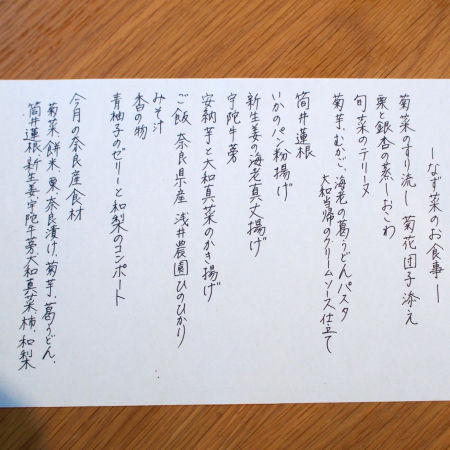 ―なず菜のお食事―
菊菜のすり流し 菊花団子添え
栗と銀杏の蒸しおこわ
旬菜のテリーヌ
菊芋、むかご、海老の葛うどんパスタ
大和当帰のクリームソース仕立て
筒井蓮根
いかのパン粉揚げ
新生姜の海老真丈揚げ
宇陀牛蒡
安納芋と大和真菜のかき揚げ
ご飯 奈良県産 浅井農園ひのひかり
みそ汁
香の物
青柚子のゼリーと和梨のコンポート
今月の奈良産食材
菊菜、餅米、栗、奈良漬け、菊芋、葛うどん、
筒井蓮根、新生姜、宇陀牛蒡、大和真菜、柿、和梨